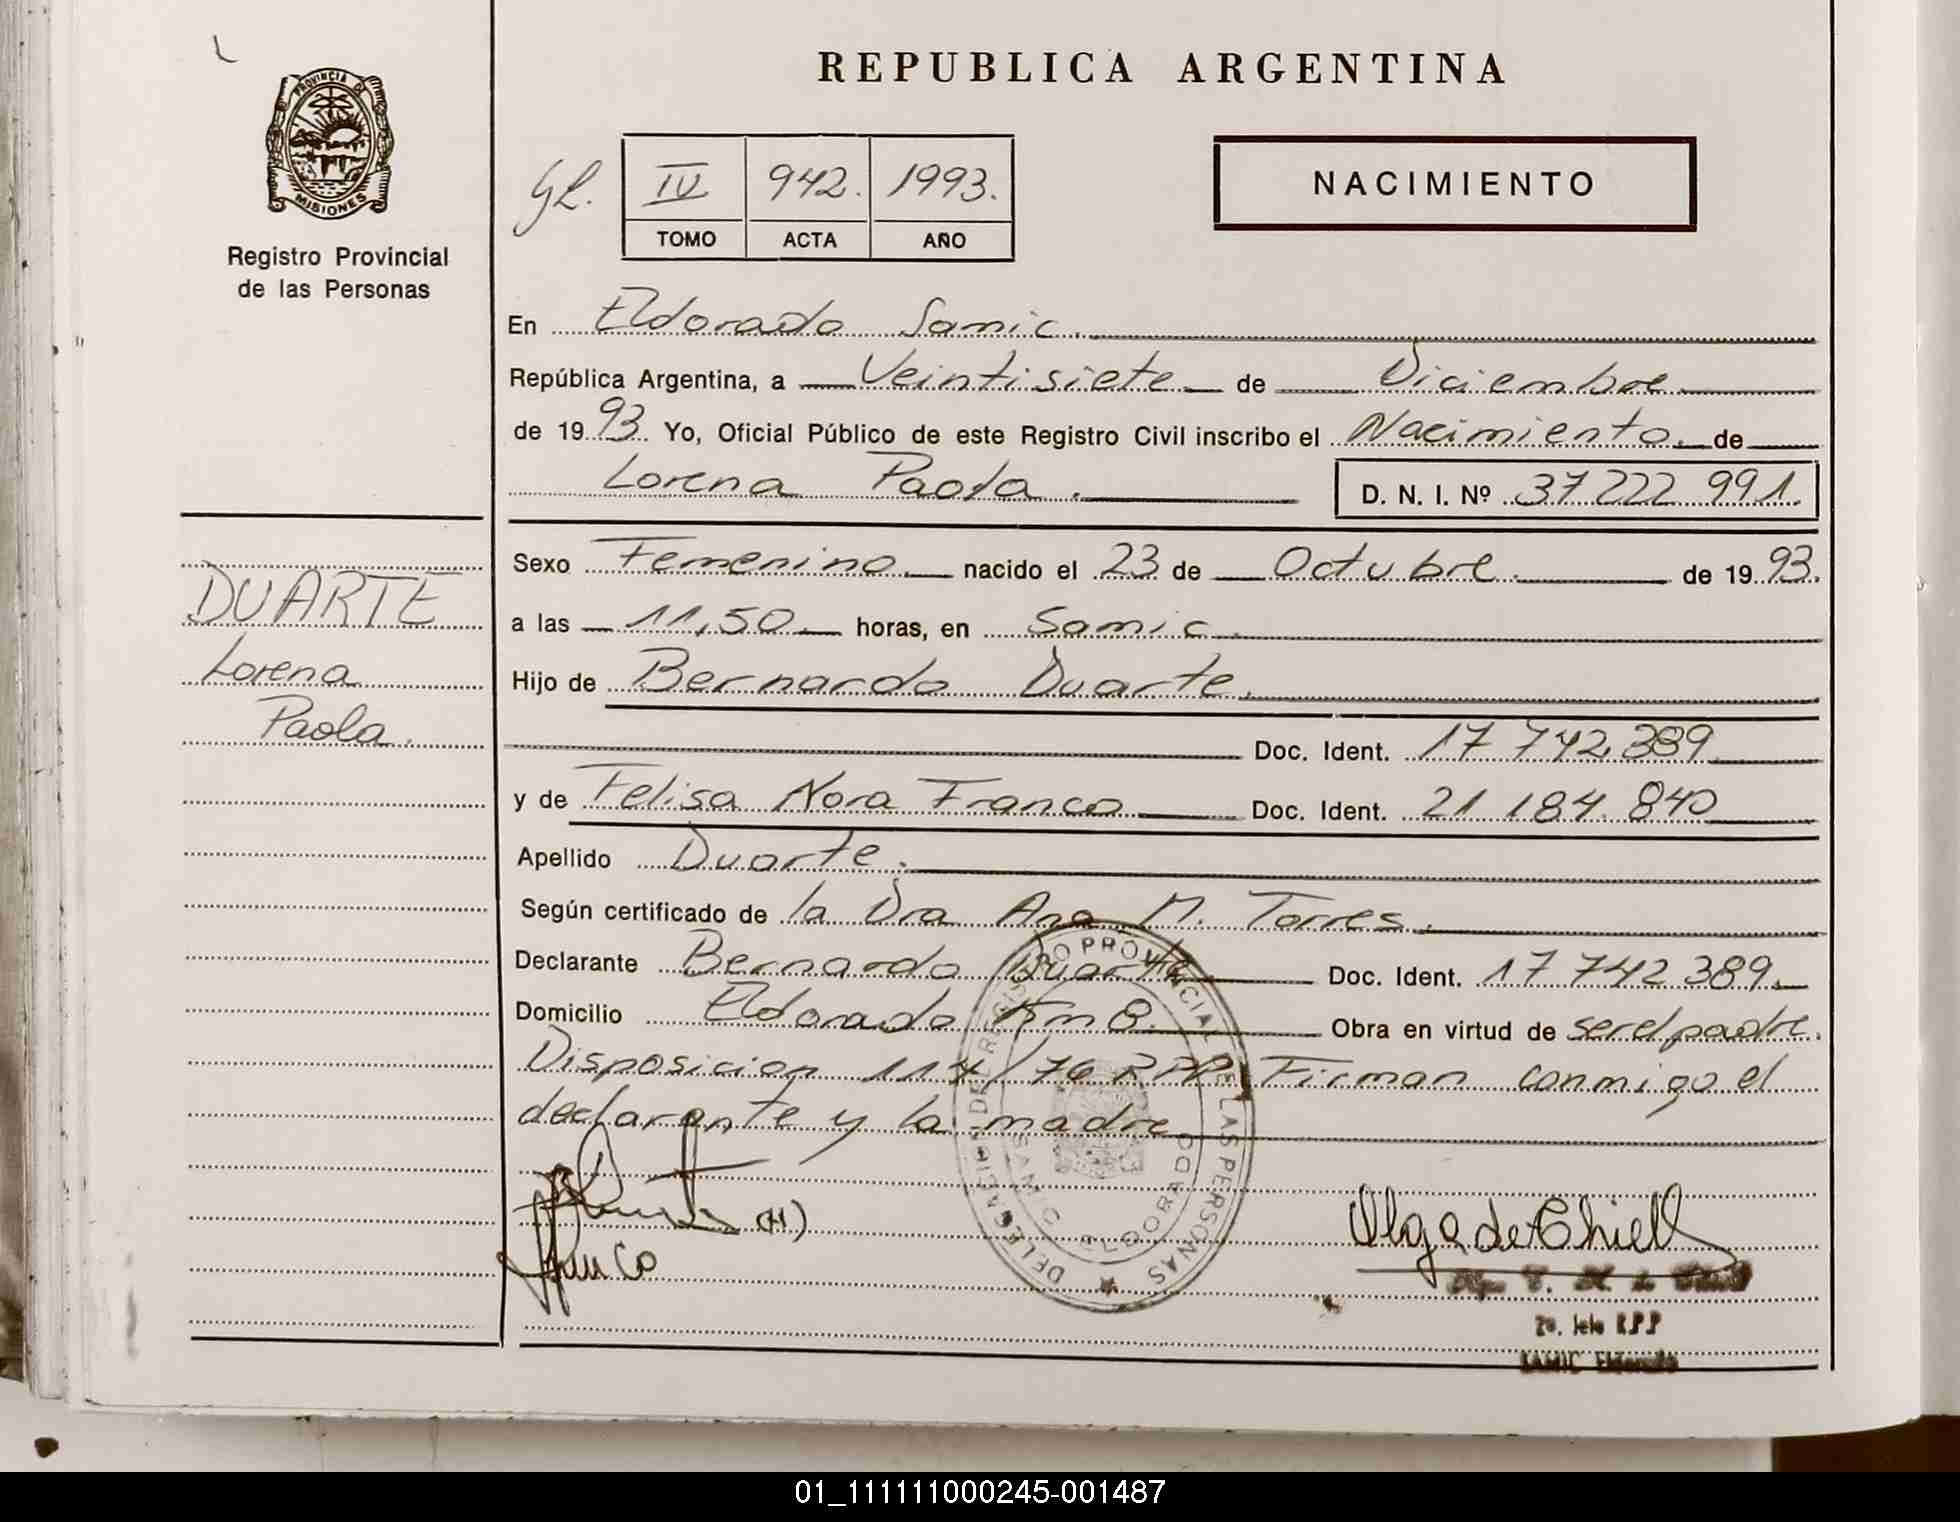 PROVINCIA DE
MISIONES
Registro Provincial
de las Personas
DUARTE
Lorena
Paola.
REPUBLICA ARGENTINA
IV 942. 1993.
TOMO ACTA AÑO
NACIMIENTO
En Eldorado Samic.
República Argentina, a Veintisiete de Diciembre
de 1993. Yo, Oficial Público de este Registro Civil inscribo el Nacimiento. de
Lorena Paola. D. N. I. Nº 37 222 991.
Sexo Femenino. nacido el 23 de Octubre. de 1993.
a las 11,50 horas, en Samic.
Hijo de Bernardo Duarte.
Doc. Ident. 17 742.389
y de Felisa Nora Franco Doc. Ident. 21 184.840
Apellido Duarte.
Según certificado de la Dra Ana M. Torres.
Declarante Bernardo Duarte Doc. Ident. 17 742 389.
Domicilio Eldorado Km 8. Obra en virtud de ser el padre.
Disposicion 117/76 RPP. Firman conmigo el
declarante y la madre
DELEGACION DEL REGISTRO PROVINCIAL DE LAS PERSONAS
SAMIC ELDORADO
(H)
Franco
Olga de Chiell
2º. Jefe R.P.P
SAMIC Eldorado
01_111111000245-001487